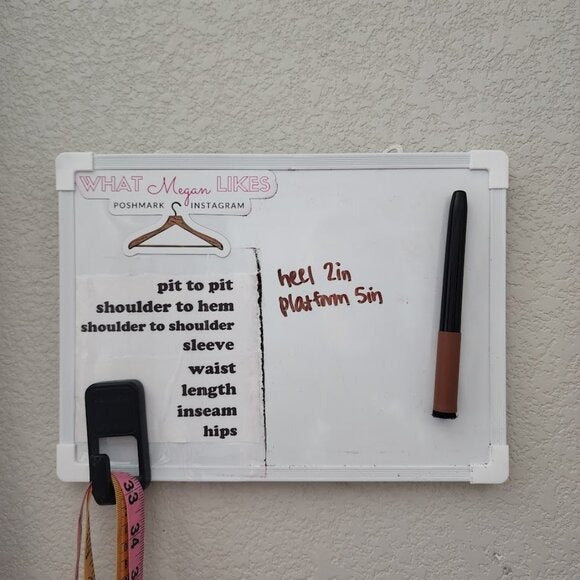 WHAT Megan LIKES
POSHMARK INSTAGRAM
pit to pit
shoulder to hem
shoulder to shoulder
sleeve
waist
length
inseam
hips
heel 2in
platform 5in
33
34
33
34